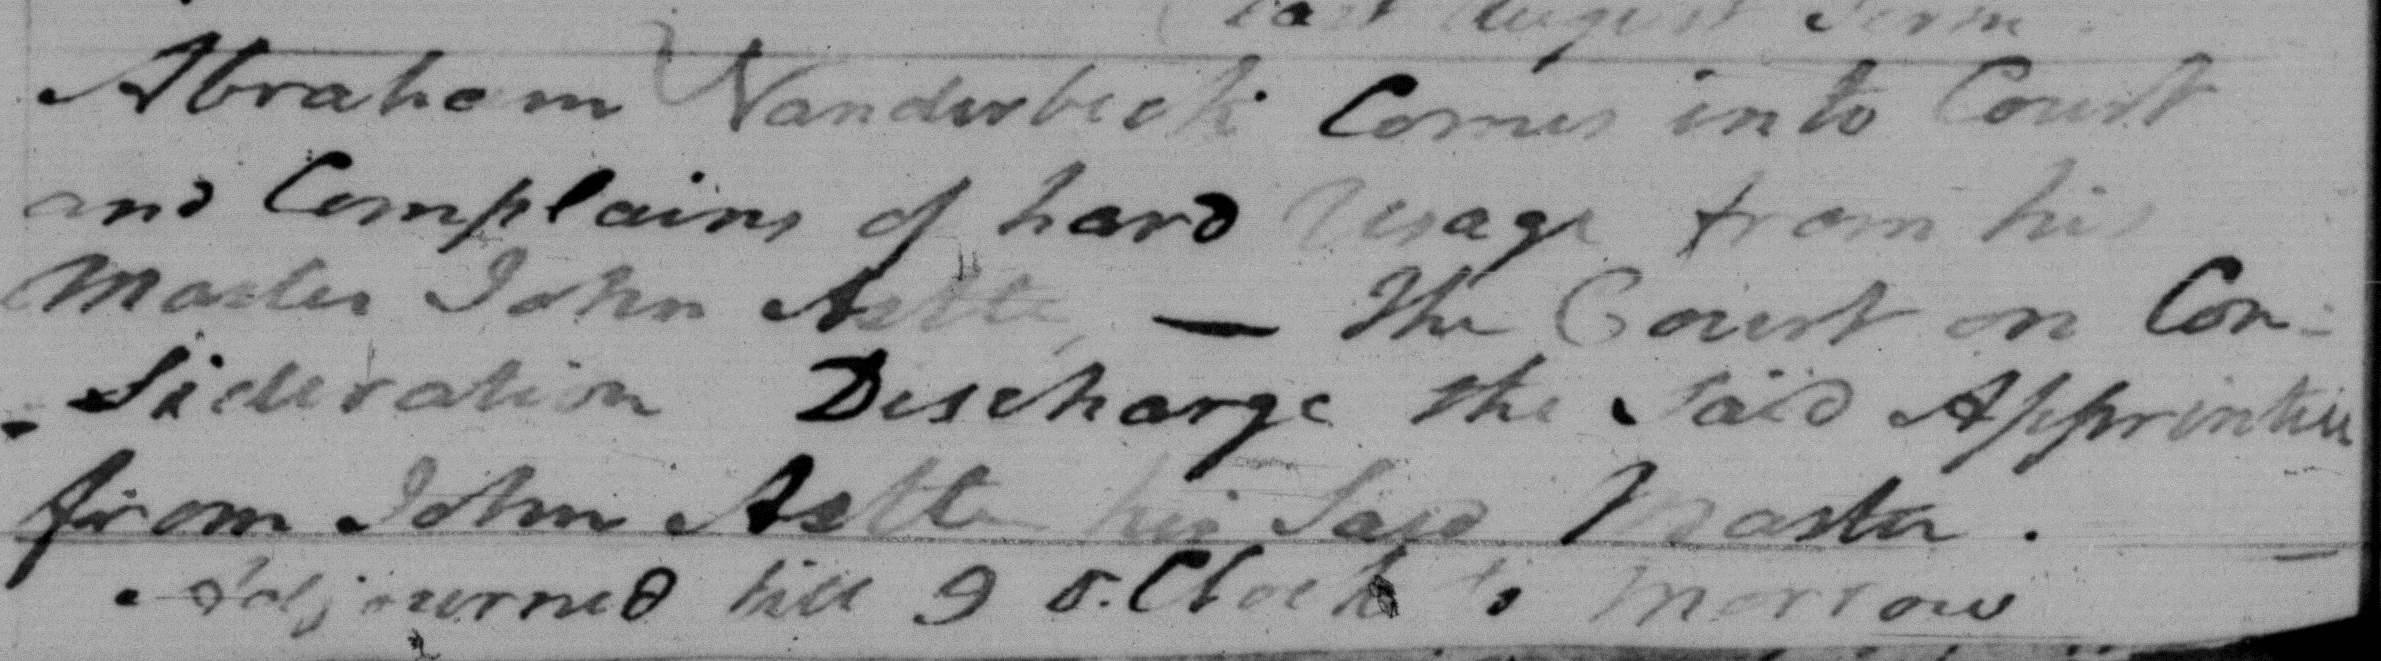 last August Term
Abraham Vanderbeck Comes into Court
and Complains of hard Usage from his
Master John Astte — The Court on Con-
-Sideration Discharge the Said Apprentice
from John Astte his Said Master.
Adjourned till 9 o.Clock to Morrow